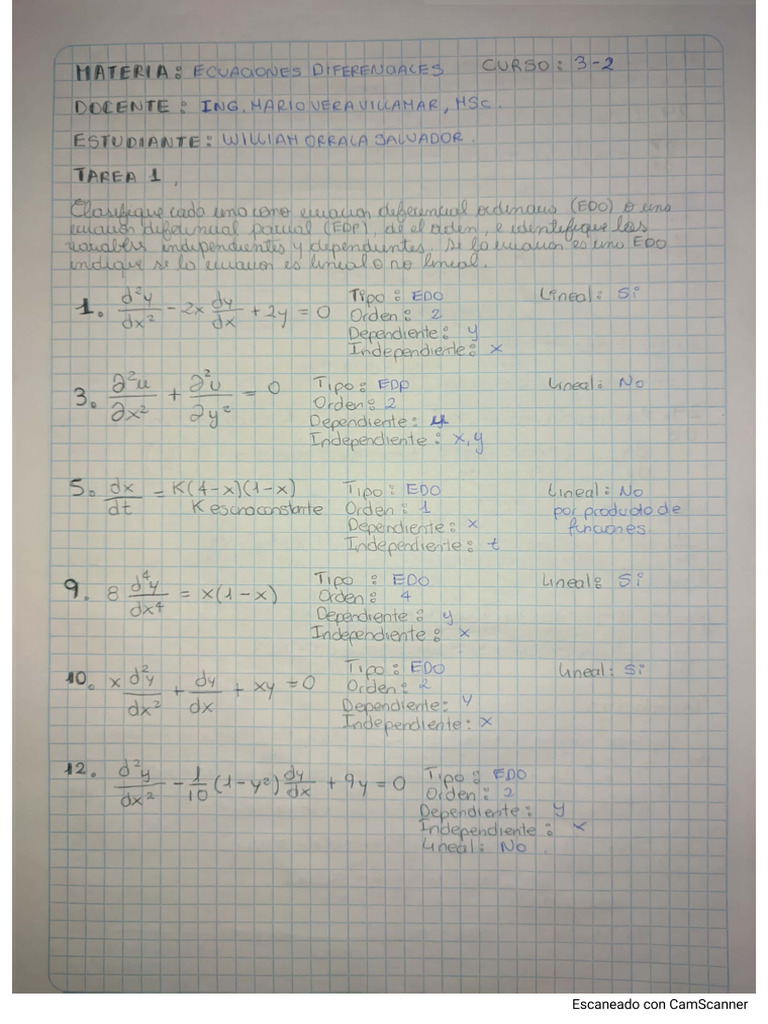 MATERIA: ECUACIONES DIFERENCIALES CURSO: 3-2
DOCENTE: ING. MARIO VERA VILLAMAR, MSc.
ESTUDIANTE: WILLIAM ORRALA SALVADOR.
TAREA 1.
Clasifique cada uno como ecuación diferencial ordinaria (EDO) o una
ecuación diferencial parcial (EDP), dé el orden, e identifique las
variables independientes y dependientes. Si la ecuación es una EDO
indique si la ecuación es lineal o no lineal.
1. d²y/dx² - 2x dy/dx + 2y = 0 Tipo: EDO Lineal: Si
Orden: 2
Dependiente: y
Independiente: x
3. ∂²u/∂x² + ∂²u/∂y² = 0 Tipo: EDP Lineal: No
Orden: 2
Dependiente: u
Independiente: x, y
5. dx/dt = K(4-x)(1-x) Tipo: EDO Lineal: No
K es una constante Orden: 1 por producto de
Dependiente: x funciones
Independiente: t
9. 8 d⁴y/dx⁴ = x(1-x) Tipo: EDO Lineal: Si
Orden: 4
Dependiente: y
Independiente: x
10. x d²y/dx² + dy/dx + xy = 0 Tipo: EDO Lineal: Si
Orden: 2
Dependiente: y
Independiente: x
12. d²y/dx² - 1/10 (1-y²) dy/dx + 9y = 0 Tipo: EDO
Orden: 2
Dependiente: y
Independiente: x
Lineal: No
Escaneado con CamScanner